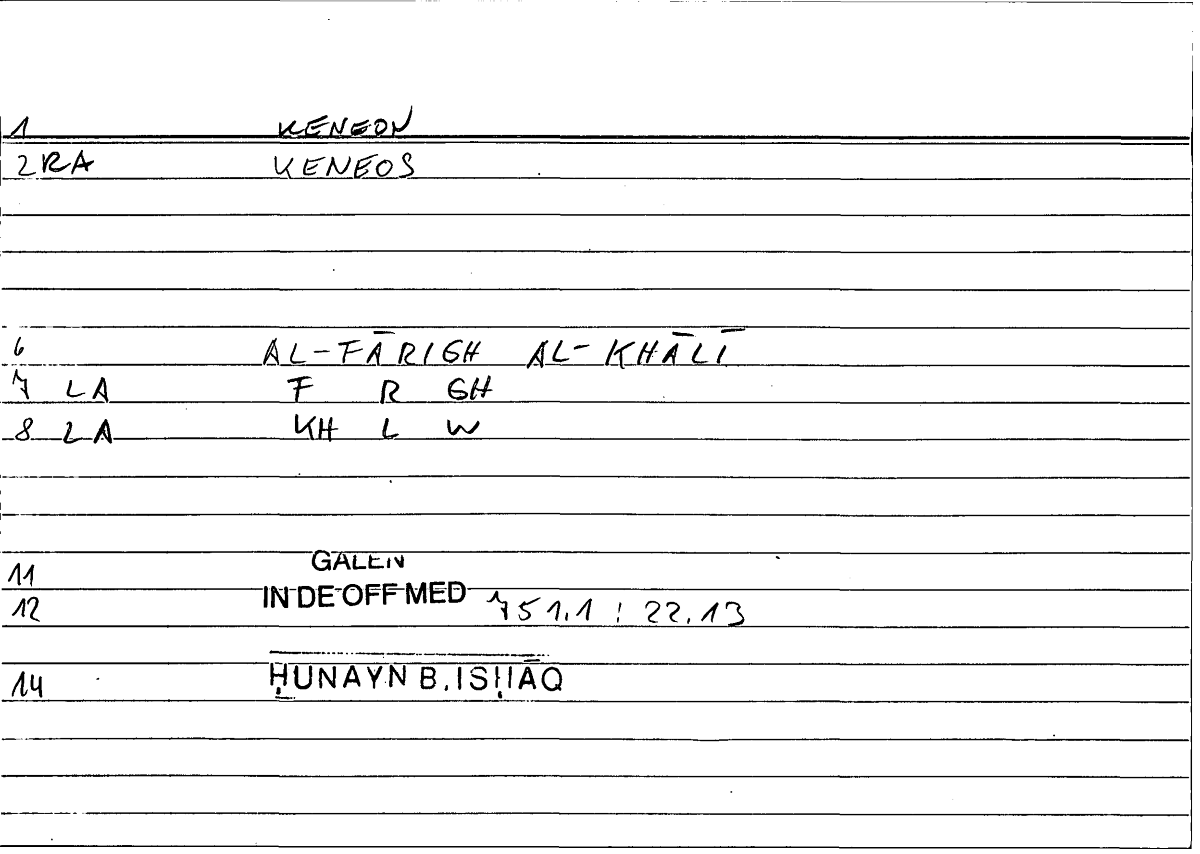 1 KENEON
2 RA KENEOS
6 AL-FĀRIGH AL-KHĀLĪ
7 LA F R GH
8 LA KH L W
11 GALEN
12 IN DE OFF MED 751.1 : 22.13
14 ḤUNAYN B. ISḤĀQ